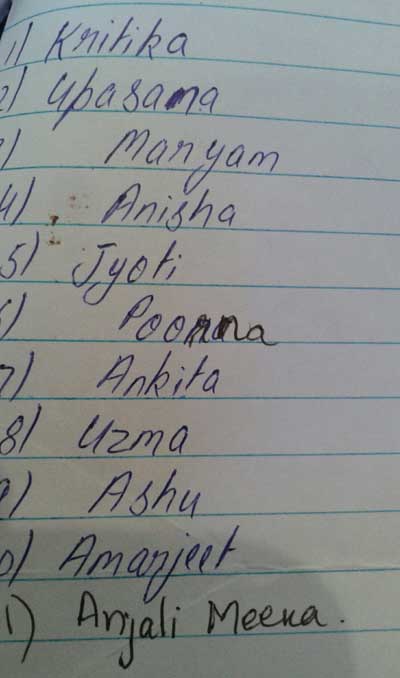 1) Kritika
2) Upasana
3) Maryam
4) Anisha
5) Jyoti
6) Poonma
7) Ankita
8) Uzma
9) Ashu
0) Amarjeet
1) Anjali Meena.